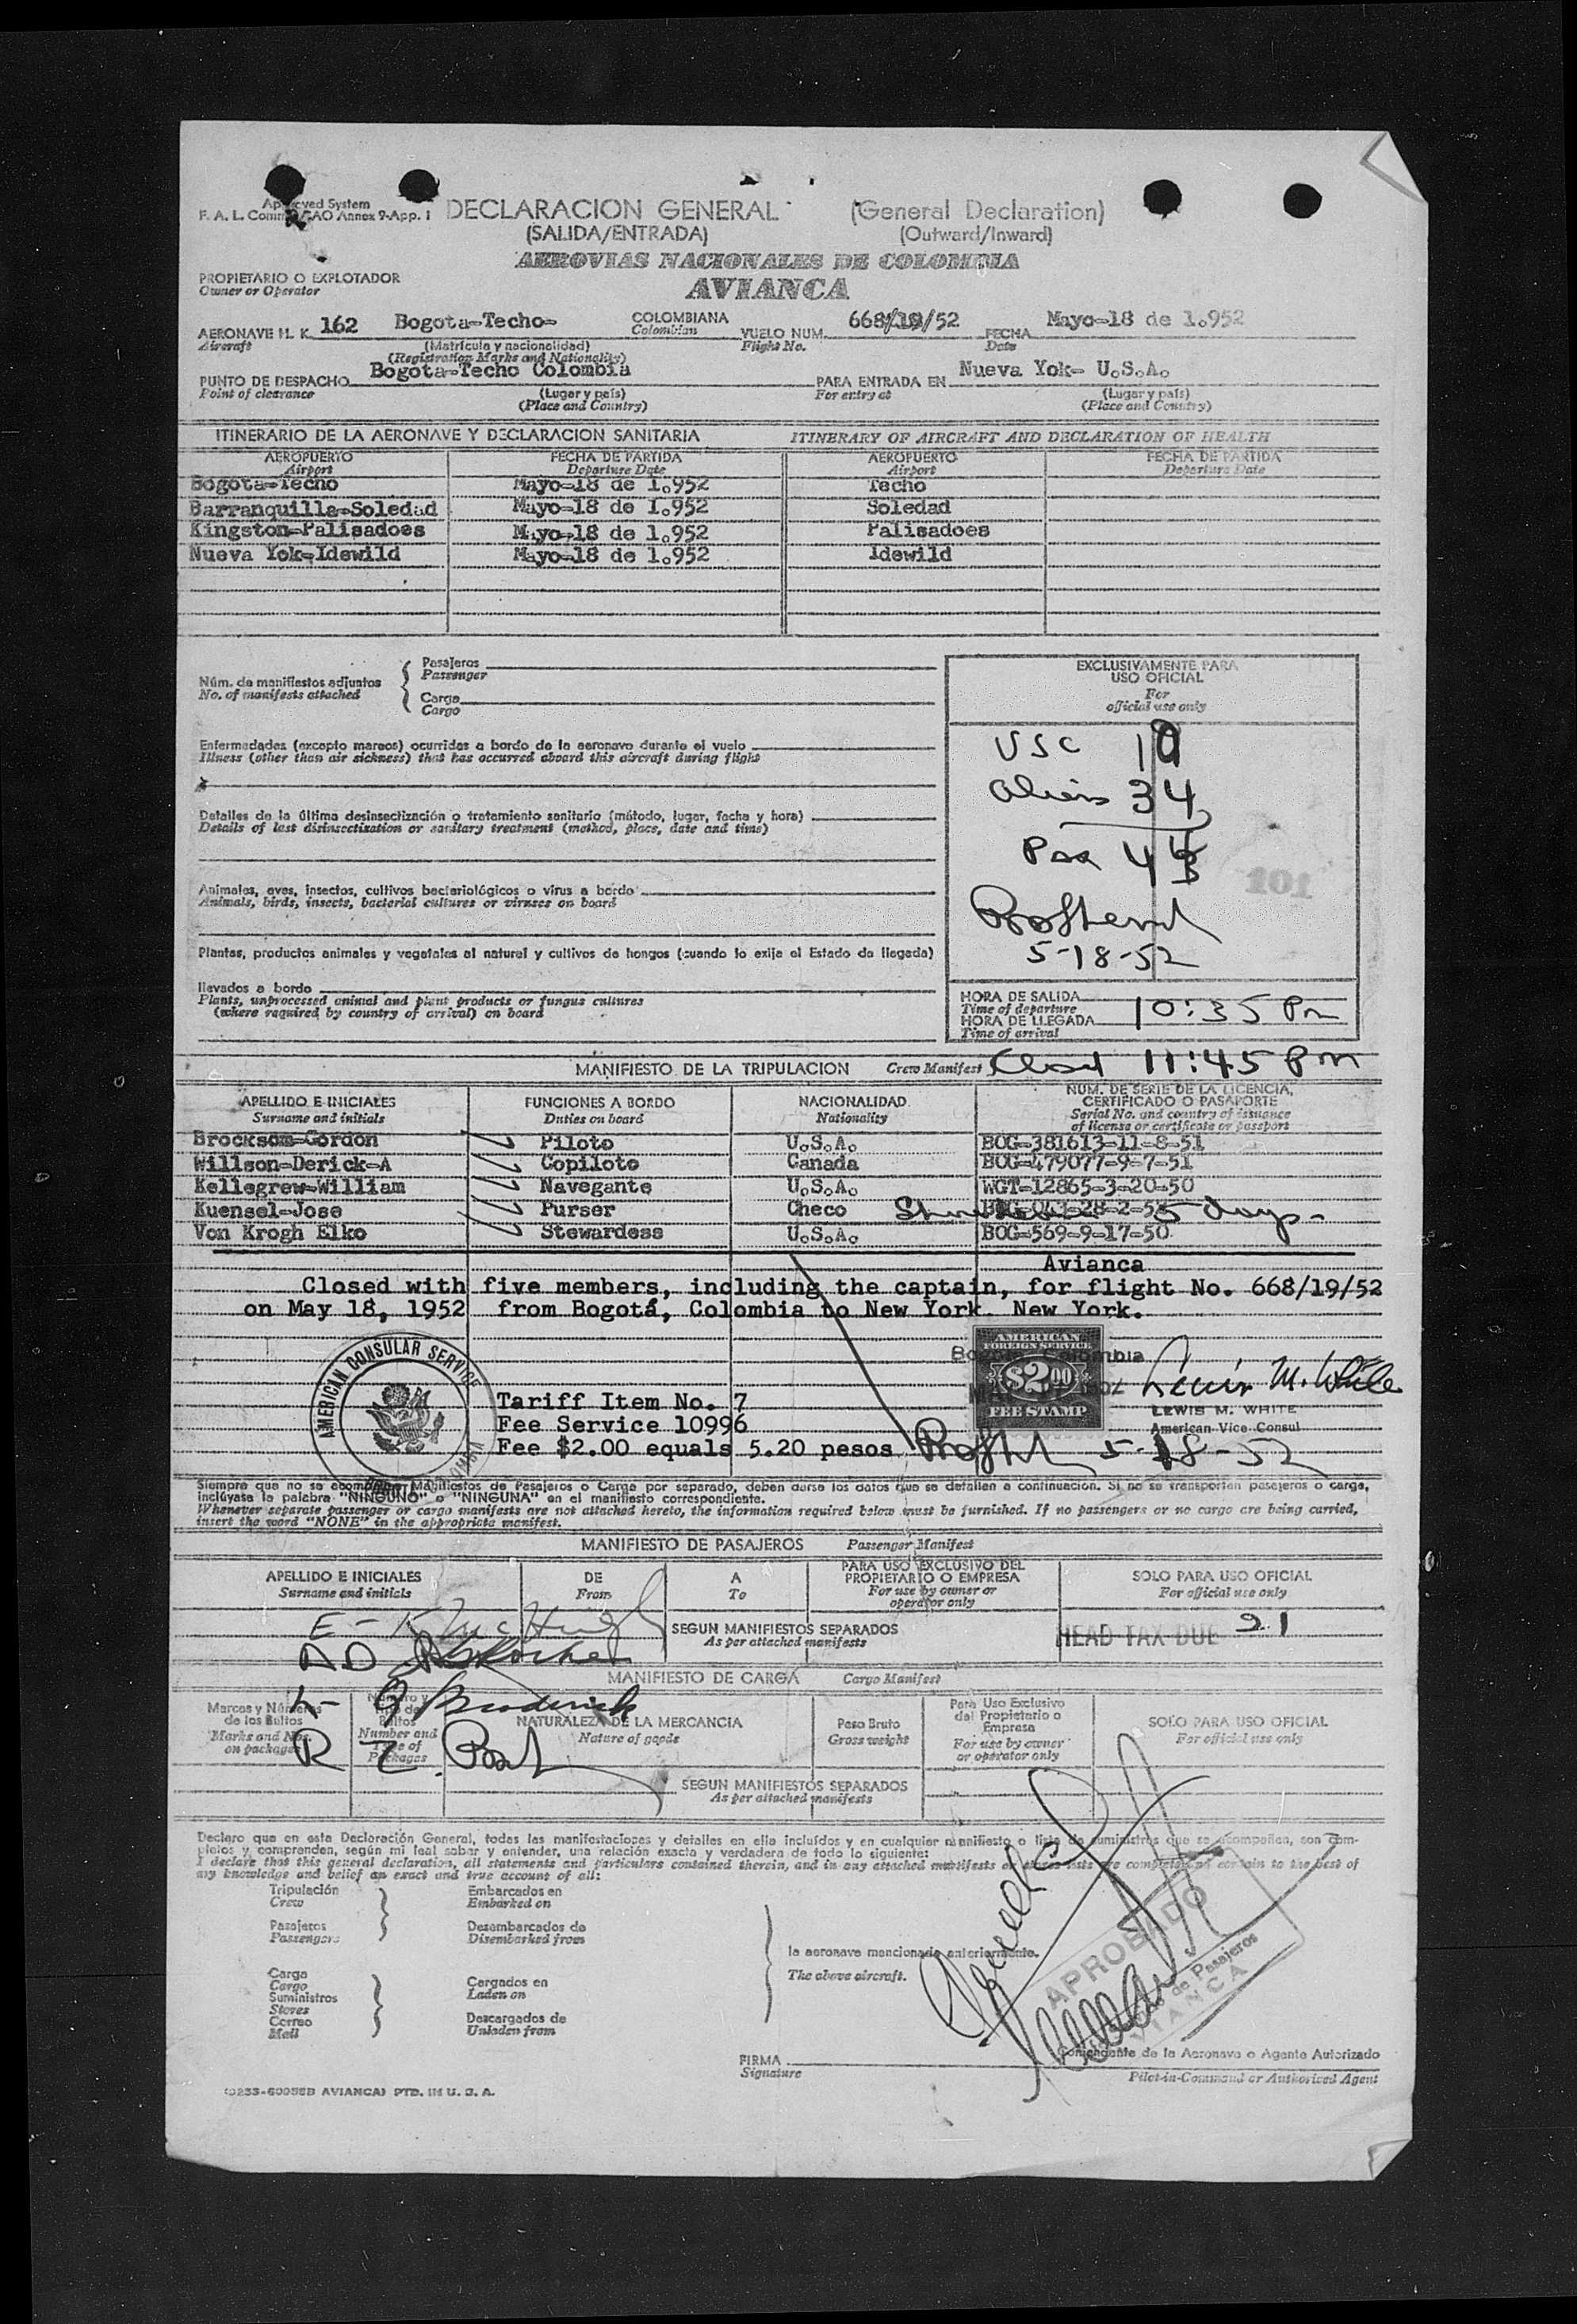 Approved System
F. A. L. Comm. ICAO Annex 9-App. 1
DECLARACION GENERAL (General Declaration)
(SALIDA/ENTRADA) (Outward/Inward)
AEROVIAS NACIONALES DE COLOMBIA
PROPIETARIO O EXPLOTADOR
Owner or Operator
AVIANCA
AERONAVE H. K. 162 Bogota-Techo- COLOMBIANA VUELO NUM. 668/19/52 FECHA Mayo-18 de 1.952
Aircraft (Matrícula y nacionalidad) Colombian Flight No. Date
(Registration Marks and Nationality)
PUNTO DE DESPACHO Bogota-Techo Colombia PARA ENTRADA EN Nueva Yok- U.S.A.
Point of clearance (Lugar y país) For entry at (Lugar y país)
(Place and Country) (Place and Country)
ITINERARIO DE LA AERONAVE Y DECLARACION SANITARIA ITINERARY OF AIRCRAFT AND DECLARATION OF HEALTH
AEROPUERTO FECHA DE PARTIDA AEROPUERTO FECHA DE PARTIDA
Airport Departure Date Airport Departure Date
Bogota-Techo Mayo-18 de 1.952 Techo
Barranquilla-Soledad Mayo-18 de 1.952 Soledad
Kingston-Palisadoes Mayo-18 de 1.952 Palisadoes
Nueva Yok-Idewild Mayo-18 de 1.952 Idewild
Núm. de manifiestos adjuntos
No. of manifests attached
Pasajeros
Passenger
Carga
Cargo
Enfermedades (excepto mareos) ocurridas a bordo de la aeronave durante el vuelo
Illness (other than air sickness) that has occurred aboard this aircraft during flight
Detalles de la última desinsectización o tratamiento sanitario (método, lugar, fecha y hora)
Details of last disinsectization or sanitary treatment (method, place, date and time)
Animales, aves, insectos, cultivos bacteriológicos o virus a bordo
Animals, birds, insects, bacterial cultures or viruses on board
Plantas, productos animales y vegetales al natural y cultivos de hongos (cuando lo exija el Estado de llegada)
llevados a bordo
Plants, unprocessed animal and plant products or fungus cultures
(where required by country of arrival) on board
EXCLUSIVAMENTE PARA
USO OFICIAL
For
official use only
USC 10
Aliens 34
Pax 4
101
5-18-52
HORA DE SALIDA
Time of departure
HORA DE LLEGADA 10:35 Pm
Time of arrival
MANIFIESTO DE LA TRIPULACION Crew Manifest Closed 11:45 Pm
APELLIDO E INICIALES FUNCIONES A BORDO NACIONALIDAD NUM. DE SERIE DE LA LICENCIA, CERTIFICADO O PASAPORTE
Surname and initials Duties on board Nationality Serial No. and country of issuance of license or certificate or passport
Brocksom-Gordon Piloto U.S.A. BOG-381613-11-8-51
Willson-Derick-A Copiloto Canada BOG-479077-9-7-51
Kellegrew-William Navegante U.S.A. WGT-12865-3-20-50
Kuensel-Jose Purser Checo 5 days-
Von Krogh Elko Stewardess U.S.A. BOG-569-9-17-50
Avianca
Closed with five members, including the captain, for flight No. 668/19/52
on May 18, 1952 from Bogotá, Colombia to New York, New York.
AMERICAN CONSULAR SERVICE
AMERICAN
FOREIGN SERVICE
$2.00
FEE STAMP
Lewis M. White
LEWIS M. WHITE
American Vice Consul
Tariff Item No. 7
Fee Service 10996
Fee $2.00 equals 5.20 pesos
5-18-52
Siempre que no se acompañen Manifiestos de Pasajeros o Carga por separado, deben darse los datos que se detallan a continuación. Si no se transportan pasajeros o carga,
inclúyase la palabra "NINGUNO" o "NINGUNA" en el manifiesto correspondiente.
Whenever separate passenger or cargo manifests are not attached hereto, the information required below must be furnished. If no passengers or no cargo are being carried,
insert the word "NONE" in the appropriate manifest.
MANIFIESTO DE PASAJEROS Passenger Manifest
APELLIDO E INICIALES DE A PARA USO EXCLUSIVO DEL PROPIETARIO O EMPRESA SOLO PARA USO OFICIAL
Surname and initials From To For use by owner or operator only For official use only
SEGUN MANIFIESTOS SEPARADOS
As per attached manifests
HEAD TAX DUE 21
MANIFIESTO DE CARGA Cargo Manifest
Marcas y Números de los Bultos Número y Tipo de Bultos NATURALEZA DE LA MERCANCIA Peso Bruto Para Uso Exclusivo del Propietario o Empresa SOLO PARA USO OFICIAL
Marks and Nos. on packages Number and Type of Packages Nature of goods Gross weight For use by owner or operator only For official use only
SEGUN MANIFIESTOS SEPARADOS
As per attached manifests
Declaro que en esta Declaración General, todas las manifestaciones y detalles en ella incluídos y en cualquier manifiesto o lista de suministros que se acompañen, son com-
pletos y comprenden, según mi leal saber y entender, una relación exacta y verdadera de todo lo siguiente:
I declare that this general declaration, all statements and particulars contained therein, and in any attached manifests or stores lists are complete and certain to the best of
my knowledge and belief an exact and true account of all:
Tripulación Embarcados en
Crew Embarked on
Pasajeros Desembarcados de
Passengers Disembarked from
la aeronave mencionada anteriormente.
The above aircraft.
Carga Cargados en
Cargo Laden on
Suministros
Stores
Correo Descargados de
Mail Unladen from
APROBADO
de Pasajeros
AVIANCA
FIRMA Comandante de la Aeronave o Agente Autorizado
Signature Pilot-in-Command or Authorized Agent
AVIANCA) PTD. IN U. S. A.